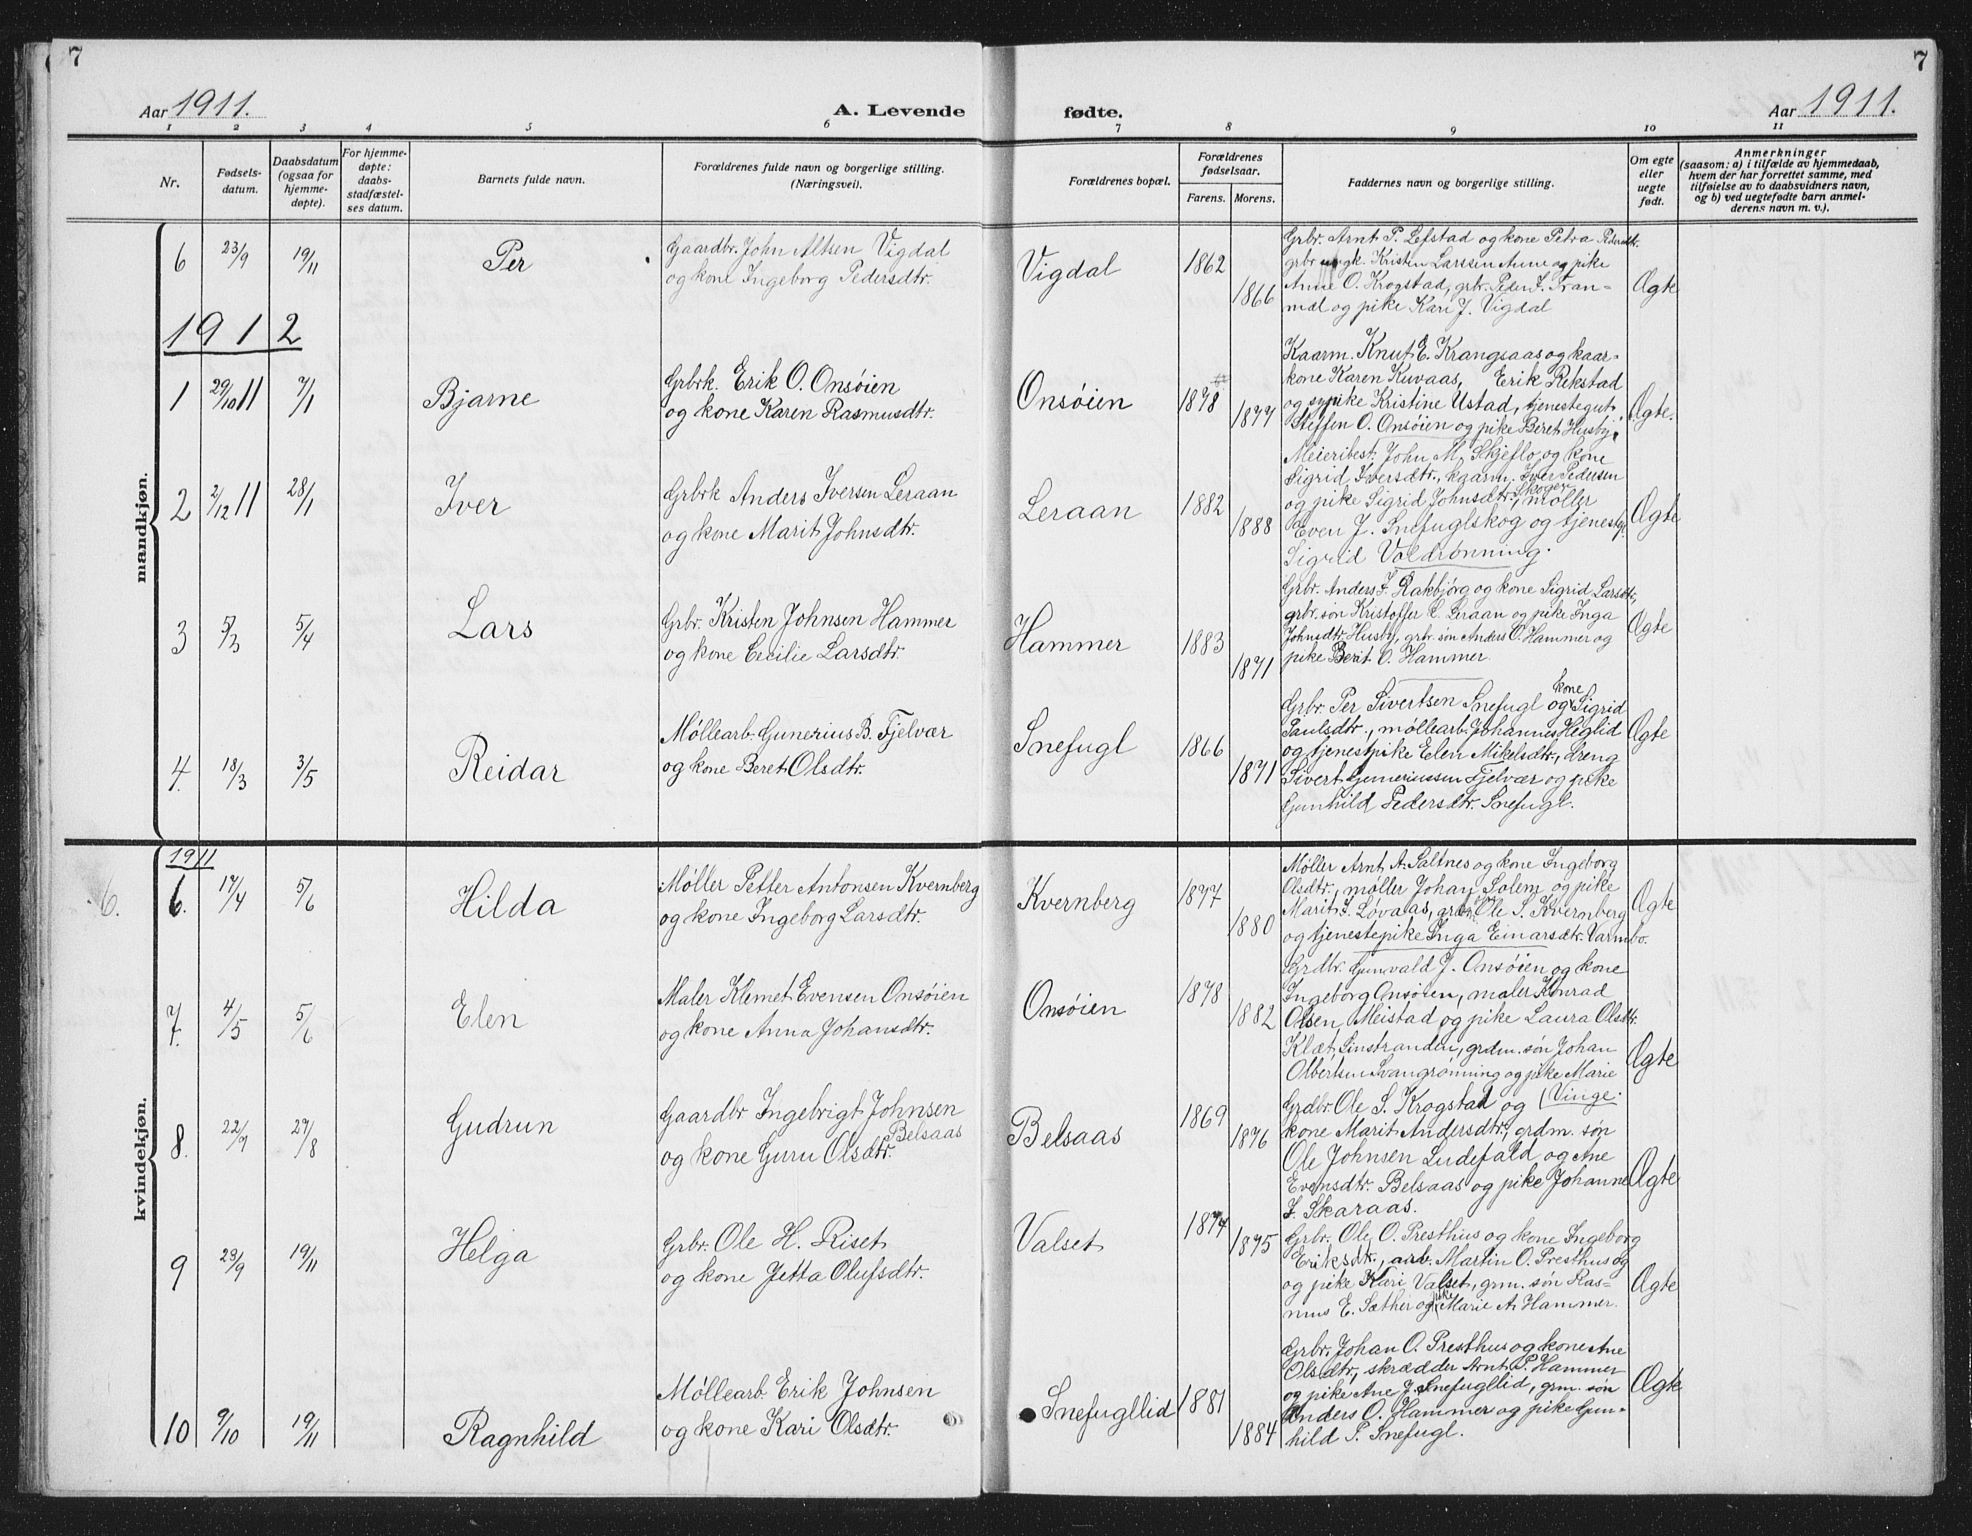 7
7
Aar 1911.
A. Levende fødte.
Aar 1911.
1 2 3 4 5 6 7 8 9 10 11
Nr.
Fødsels-
datum.
Daabsdatum
(ogsaa for
hjemme-
døpte).
For hjemme-
døpte:
daabs-
stadfæstel-
ses datum.
Barnets fulde navn.
Forældrenes fulde navn og borgerlige stilling.
(Næringsvei).
Forældrenes bopæl.
Forældrenes
fødselsaar.
Farens. Morens.
Faddernes navn og borgerlige stilling.
Om egte
eller
uegte
født.
Anmerkninger
(saasom: a) i tilfælde av hjemmedaab,
hvem der har forrettet samme, med
tilføielse av to daabsvidners navn,
og b) ved uegtefødte barn anmel-
derens navn m. v.).
mandkjøn.
6 23/9 19/11 Per
Gaardbr. John Altsen Vigdal
og kone Ingeborg Pedersdtr.
Vigdal 1862 1866
Grbr. Arnt P. Lefstad og kone Petra Pedersdtr.
grbr. Kristen Larssen Anne og pike
Anne O. Krogstad, grbr. Peder J. Tran-
mæl og pike Kari J. Vigdal
Ægte
1912
1 29/10 11 7/1 Bjarne
Grbrk. Erik O. Onsøien
og kone Karen Rasmusdtr.
Onsøien 1878 1877
Kaarm. Knut E. Krangsaas og kaar-
kone Karen Kuvaas, Erik Rekstad
og sypike Kristine Ustad, tjenestegut
Steffen O. Onsøien og pike Beret Husby.
Ægte.
2 2/12 11 28/1 Iver
Grbrk Anders Iversen Leraan
og kone Marit Johnsdtr.
Leraan 1882 1888
Meieribest. John M. Skjeflo og kone
Sigrid Iversdtr., kaarm. Iver Pedersen
og pike Sigrid Johnsdtr. Skogen, møller
Even J. Snefuglskog og tjenestp.
Sigrid Voldrønning.
Ægte
3 5/3 5/4 Lars
Grbr. Kristen Johnsen Hammer
og kone Cecilie Larsdtr.
Hammer 1883 1871
Grbr. Anders J. Rakbjørg og kone Sigrid Larsdtr,
grbr. søn Kristoffer C. Leraan og pike Inga
Johnsdtr. Husby, grbr. søn Anders O. Hammer og
pike Berit O. Hammer.
Ægte
4. 18/3 3/5 Reidar
Møllearb. Gunerius B. Fjelvær
og kone Beret Olsdtr.
Snefugl 1866 1871
Grbr. Per Sivertsen Snefugl og kone Sigrid
Paulsdtr., møllearb. Johannes Heglid
og tjenestpike Elen Mikelsdtr., dreng
Sivert Guneriussen Fjelvær og pike
Gunhild Pedersdtr. Snefugl.
Ægte
kvindekjøn.
1911
6.
6. 17/4 5/6 Hilda
Møller Petter Antonsen Kvernberg
og kone Ingeborg Larsdtr.
Kvernberg 1877 1880
Møller Arnt A. Saltnes og kone Ingeborg
Olsdtr., møller Johan Solem og pike
Marit J. Løvaas, grdm. søn Ole S. Kvernberg
og tjenestepike Inga Einarsdtr. Varmbo.
Ægte
7. 4/5 5/6 Elen
Maler Klemet Evensen Onsøien
og kone Anna Johansdtr.
Onsøien 1878 1882
Grdbr. Gunvald J. Onsøien og kone
Ingeborg Onsøien, maler Konrad
Olsen Meistad og pike Laura Olsdtr.
Klæt Sinstranden, grdm. søn Johan
Olbertsen Svangrønning og pike Marie
Vinge.
Ægte
8. 22/7 27/8 Gudrun
Gaardbr Ingebrigt Johnsen
Belsaas
og kone Guru Olsdtr.
Belsaas 1869 1876
Grdbr. Ole S. Krogstad og
kone Marit Andersdtr., grdm. søn
Ole Johnsen Ludefald og Ane
Evensdtr. Belsaas og pike Johanne
J. Skaraas.
Ægte
9 23/9 19/11 Helga
Grbr. Ole H. Riset
og kone Jetta Olufsdtr.
Valset 1874 1875
Grbr. Ole O. Presthus og kone Ingeborg
Eriksdtr., arb. Martin O. Presthus og
og pike Kari Valset, grm. søn Ras-
mus E. Sæther og pike Marie A. Hammer.
Ægte
10 9/10 19/11 Ragnhild
Møllearb Erik Johnsen
og kone Kari Olsdtr.
Snefugllid 1881 1884
Grbr. Johan O. Presthus og kone Ane
Olsdtr, skrædder Arnt P. Hammer
og pike Ane J. Snefugllid, grm. søn
Anders O. Hammer og pike Gun-
hild P. Snefugl.
Ægte